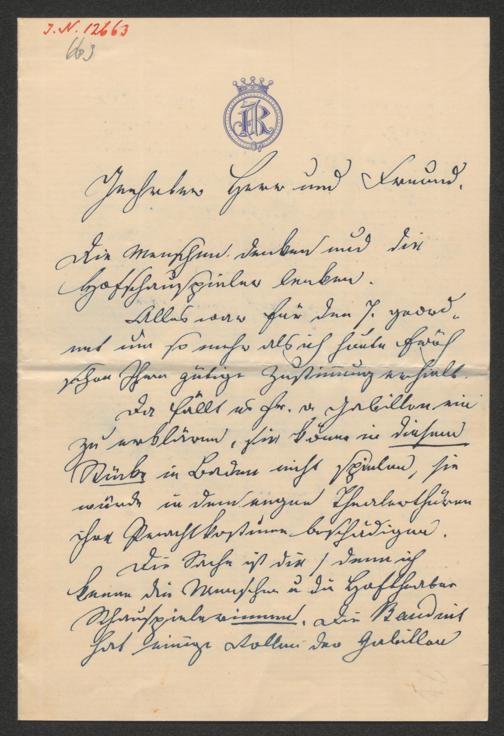 J.N. 12663
663
Geehrter Herr und Freund.
Die Menschen denken und die
Hofschauspieler lenken.
Alles war für den 7. geord-
net um so mehr als ich heute früh
schon Ihre gütige Zustimmung erhielt.
Da fällt es Fr. v Gabillon ein
zu erklären, sie könne in diesem
Stücke in Baden nicht spielen, sie
würde in dem engen Theaterthüren
ihre Prachtkostüme beschädigen.
Die Sache ist die / denn ich
kenne die Menschen u die Hoftheater
Schauspielerinnen. Die Baudius
hat einige Rollen der Gabillon